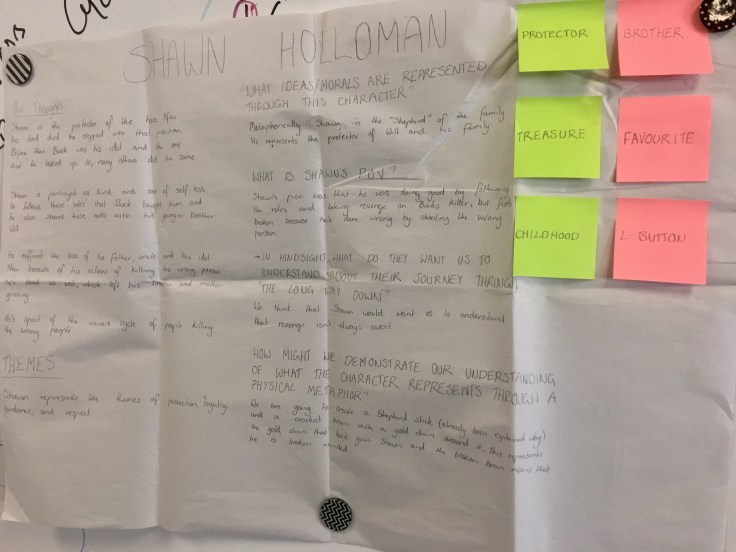 SHAWN HOLLOMAN
Shawn is the protector of the
his dad died he stepped into that position
Before then Buck was his idol and the one
that he looked up to, many others did the same
Shawn is portrayed as kind and sort of self less.
He follows these rules that Buck taught him and
he also shares these rules with his younger brother
Will
He suffered the loss of his father, uncle and his idol
Now because of his actions of killing the wrong person
he's dead as well, which left his brother and mother
grieving
He's apart of the vicious cycle of people killing
the wrong people
THEMES
Shawn represents the themes of protection, loyalty,
guidance, and respect.
WHAT IDEAS/MORALS ARE REPRESENTED
THROUGH THIS CHARACTER?
Metaphorically Shawn is the "Shepherd" of the family
He represents the protector of Will and his family
WHAT IS SHAWN'S P.O.V?
Shawn's was that he was doing good by following
the rules and taking revenge on Bucks killer, but
broken because he's done wrong by shooting the wrong
person
- IN HINDSIGHT, WHAT DO THEY WANT US TO
UNDERSTAND ABOUT THEIR JOURNEY THROUGH
"THE LONG WAY DOWN"
We think that Shawn would want us to understand
that revenge isn't always sweet
HOW MIGHT WE DEMONSTRATE OUR UNDERSTANDING
OF WHAT THE CHARACTER REPRESENTS THROUGH A
PHYSICAL METAPHOR?
We are going to create a Shepherd stick (already been explained why)
and a brain with a gold chain around it, this represents
the gold chain that Buck gave Shawn and the broken brain means that
he is broken minded
PROTECTOR
BROTHER
TREASURE
FAVOURITE
CHILDHOOD
L-BUTTON